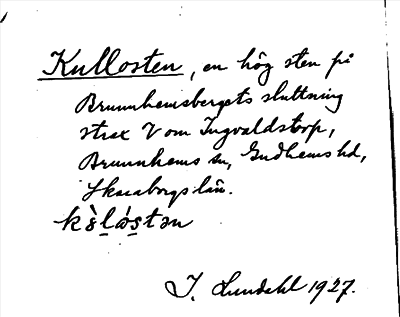 Kullosten, en hög sten på
Brunnhemsbergets sluttning
strax V om Ingvaldstorp,
Brunnhems sn, Gudhems hd,
Skaraborgs län.
kò̱lås̱tən
I. Lundahl 1927.